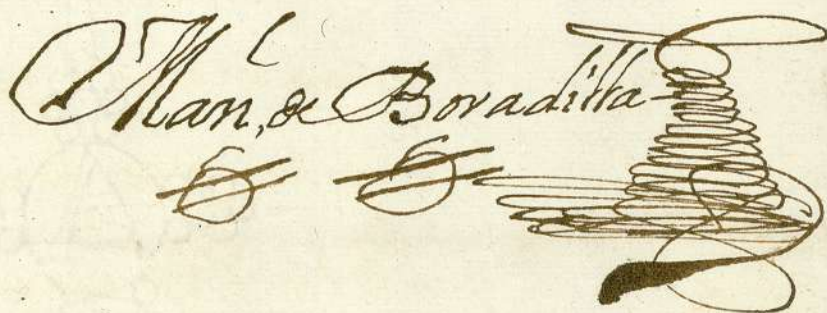 Man^l, de Bovadilla